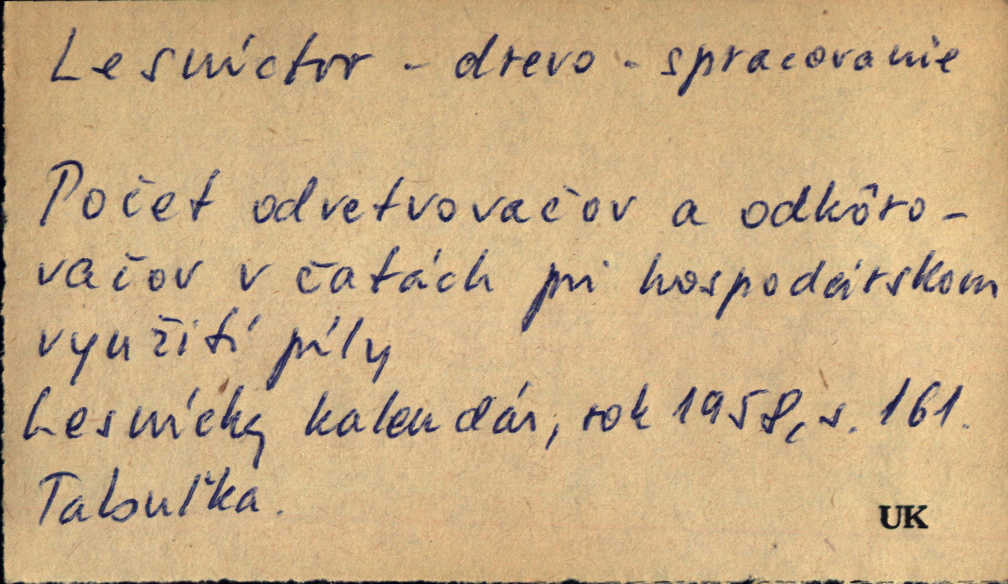 Lesníctvo - drevo - spracovanie
Počet odvetvovačov a odkôro-
vačov v čatách pri hospodárskom
využití píly
Lesnícky kalendár, rok 1958, s. 161.
Tabuľka.
UK